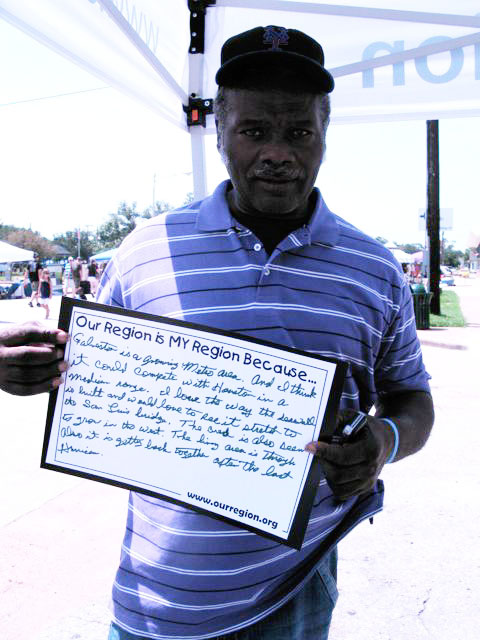 Our Region is MY Region Because...
Galveston is a growing Metro area. And I think
it could compete with Houston in a
median range. I love the way the seawall
is built and would love to see it stretch to
do San Luis bridge. The is also seen
to grow in the west. The area is through
Also it is gettg back together after the last
www.ourregion.org
www